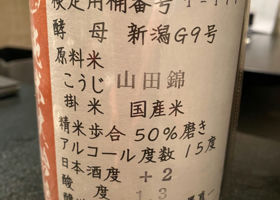 検定用桶番号
酵 母 新潟G9号
原料米
こうじ 山田錦
掛米 国産米
精米歩合 50%磨き
アルコール度数 15度
日本酒度 +2
酸 度 1.3